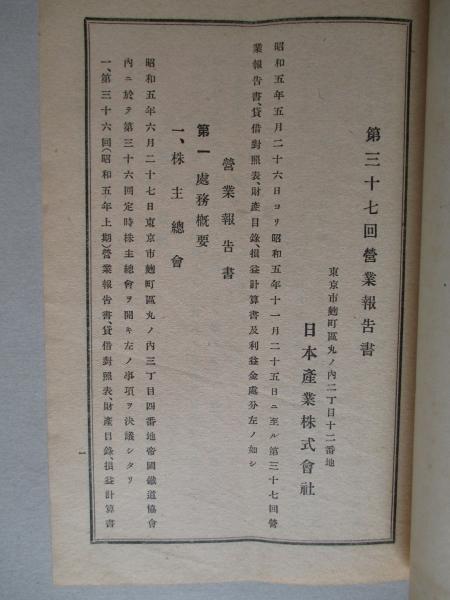 第三十七回營業報告書
東京市麴町區丸ノ内二丁目十二番地
日本產業株式會社
昭和五年五月二十六日ヨリ昭和五年十一月二十五日ニ至ル第三十七回營
業報告書、貸借對照表、財產目錄、損益計算書及利益金處分左ノ如シ
營業報告書
第一 處務概要
一、株主總會
昭和五年六月二十七日東京市麴町區丸ノ内三丁目四番地帝國鐵道協會
内ニ於テ第三十六回定時株主總會ヲ開キ左ノ事項ヲ決議シタリ
一、第三十六回(昭和五年上期)營業報告書、貸借對照表、財產目錄、損益計算書
一